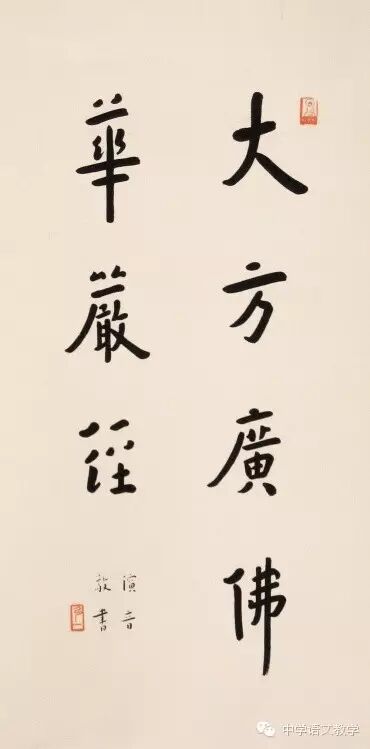 大方廣佛
華嚴經
演音
敬書
中学语文教学